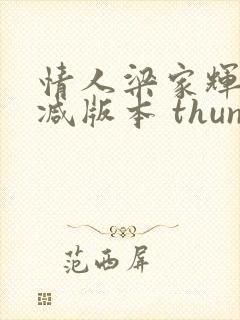 情人梁家輝
减版本 thun
范西屏